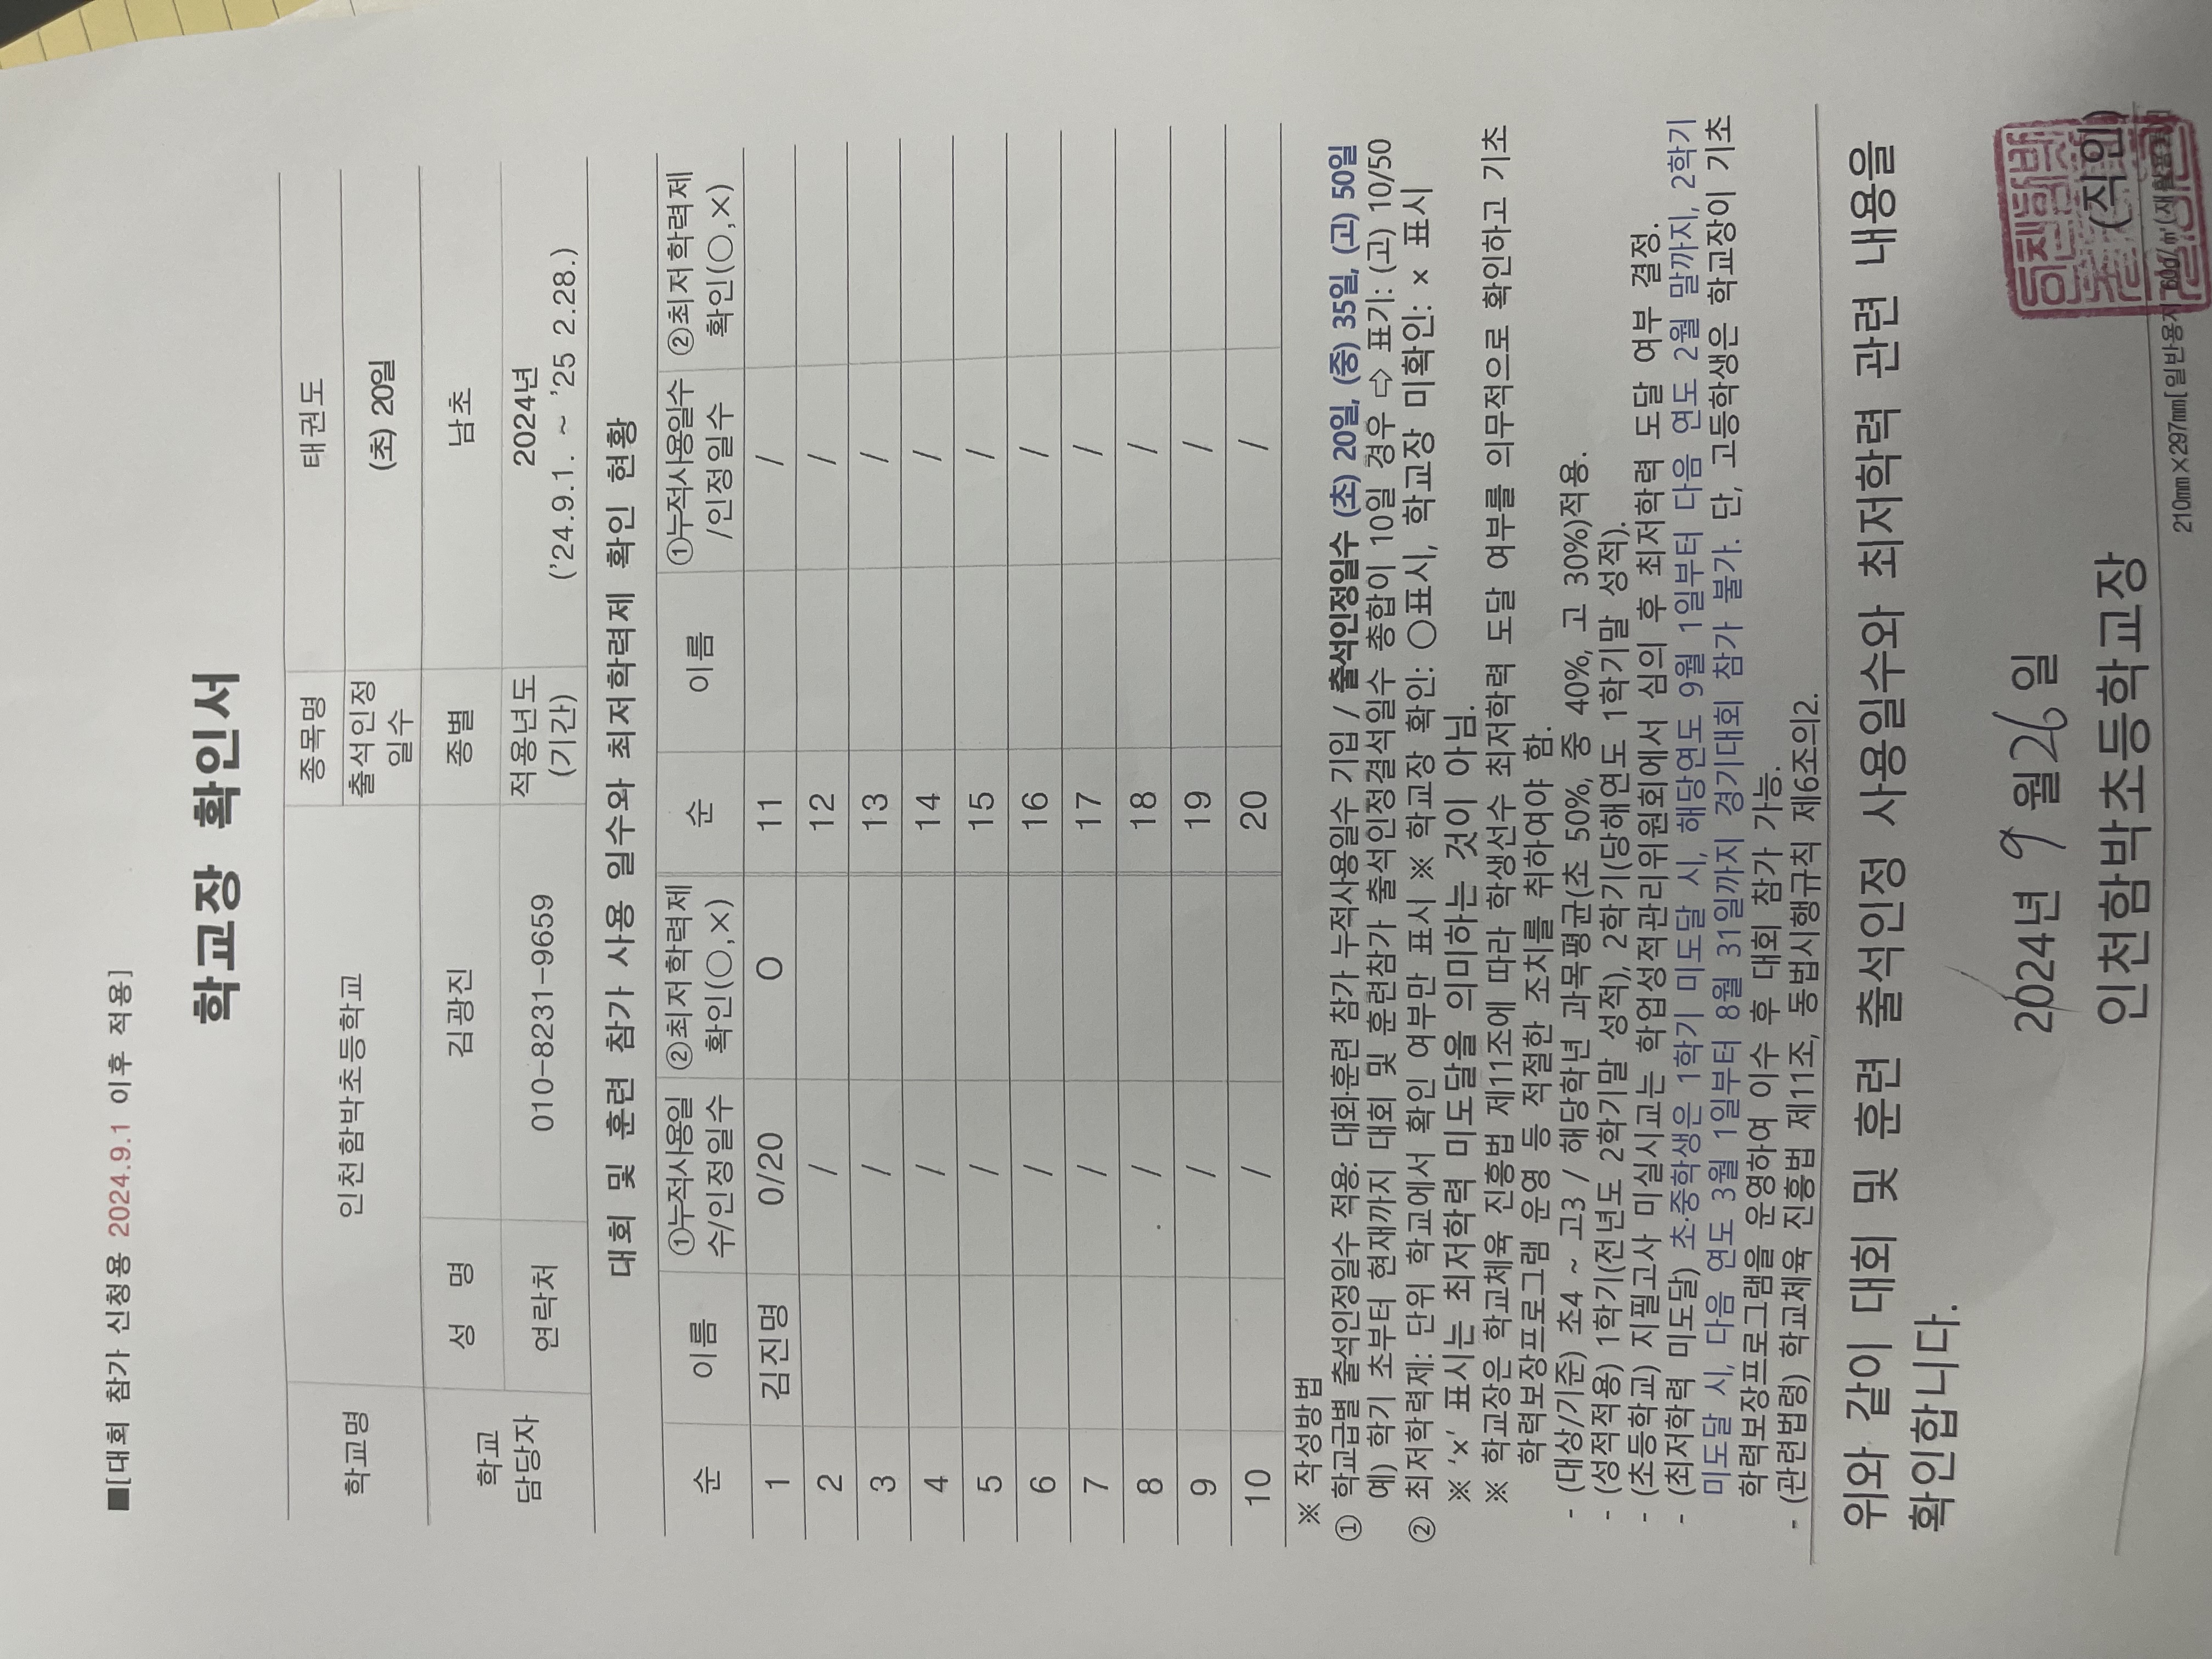 ■[대회 참가 신청용 2024.9.1 이후 적용]
학교장 확인서
학교명 인천함박초등학교 종목명 태권도
출석인정일수 (초) 20일
학교 담당자 성 명 김광진 종별 남초
연락처 010-8231-9659 적용년도(기간) 2024년 ('24.9.1. ~ '25 2.28.)
대회 및 훈련 참가 사용 일수와 최저학력제 확인 현황
순 이름 ①누적사용일수/인정일수 ②최저학력제 확인(○,×) 순 이름 ①누적사용일수/인정일수 ②최저학력제 확인(○,×)
1 김진명 0/20 O 11 /
2 / 12 /
3 / 13 /
4 / 14 /
5 / 15 /
6 / 16 /
7 / 17 /
8 / 18 /
9 / 19 /
10 / 20 /
※ 작성방법
① 학교급별 출석인정일수 적용: 대회·훈련 참가 누적사용일수 기입 / 출석인정일수 (초) 20일, (중) 35일, (고) 50일
예) 학기 초부터 현재까지 대회 및 훈련참가 출석인정결석일수 총합이 10일 경우 ⇨ 표기: (고) 10/50
② 최저학력제: 단위 학교에서 확인 여부만 표시 ※ 학교장 확인: ○표시, 학교장 미확인: × 표시
※ '×' 표시는 최저학력 미도달을 의미하는 것이 아님.
※ 학교장은 학교체육 진흥법 제11조에 따라 학생선수 최저학력 도달 여부를 의무적으로 확인하고 기초
학력보장프로그램 운영 등 적절한 조치를 취하여야 함.
- (대상/기준) 초4 ~ 고3 / 해당학년 과목평균(초 50%, 중 40%, 고 30%)적용.
- (성적적용) 1학기(전년도 2학기말 성적), 2학기(당해연도 1학기말 성적).
- (초등학교) 지필고사 미실시교는 학업성적관리위원회에서 심의 후 최저학력 도달 여부 결정.
- (최저학력 미도달) 초·중학생은 1학기 미도달 시, 해당연도 9월 1일부터 다음 연도 2월 말까지, 2학기
미도달 시, 다음 연도 3월 1일부터 8월 31일까지 경기대회 참가 불가. 단, 고등학생은 학교장이 기초
학력보장프로그램을 운영하여 이수 후 대회 참가 가능.
- (관련법령) 학교체육 진흥법 제11조, 동법시행규칙 제6조의2.
위와 같이 대회 및 훈련 출석인정 사용일수와 최저학력 관련 내용을
확인합니다.
2024년 9월 26일
인천함박초등학교장 (직인)
210mm×297mm[일반용지 60g/㎡(재활용품)]